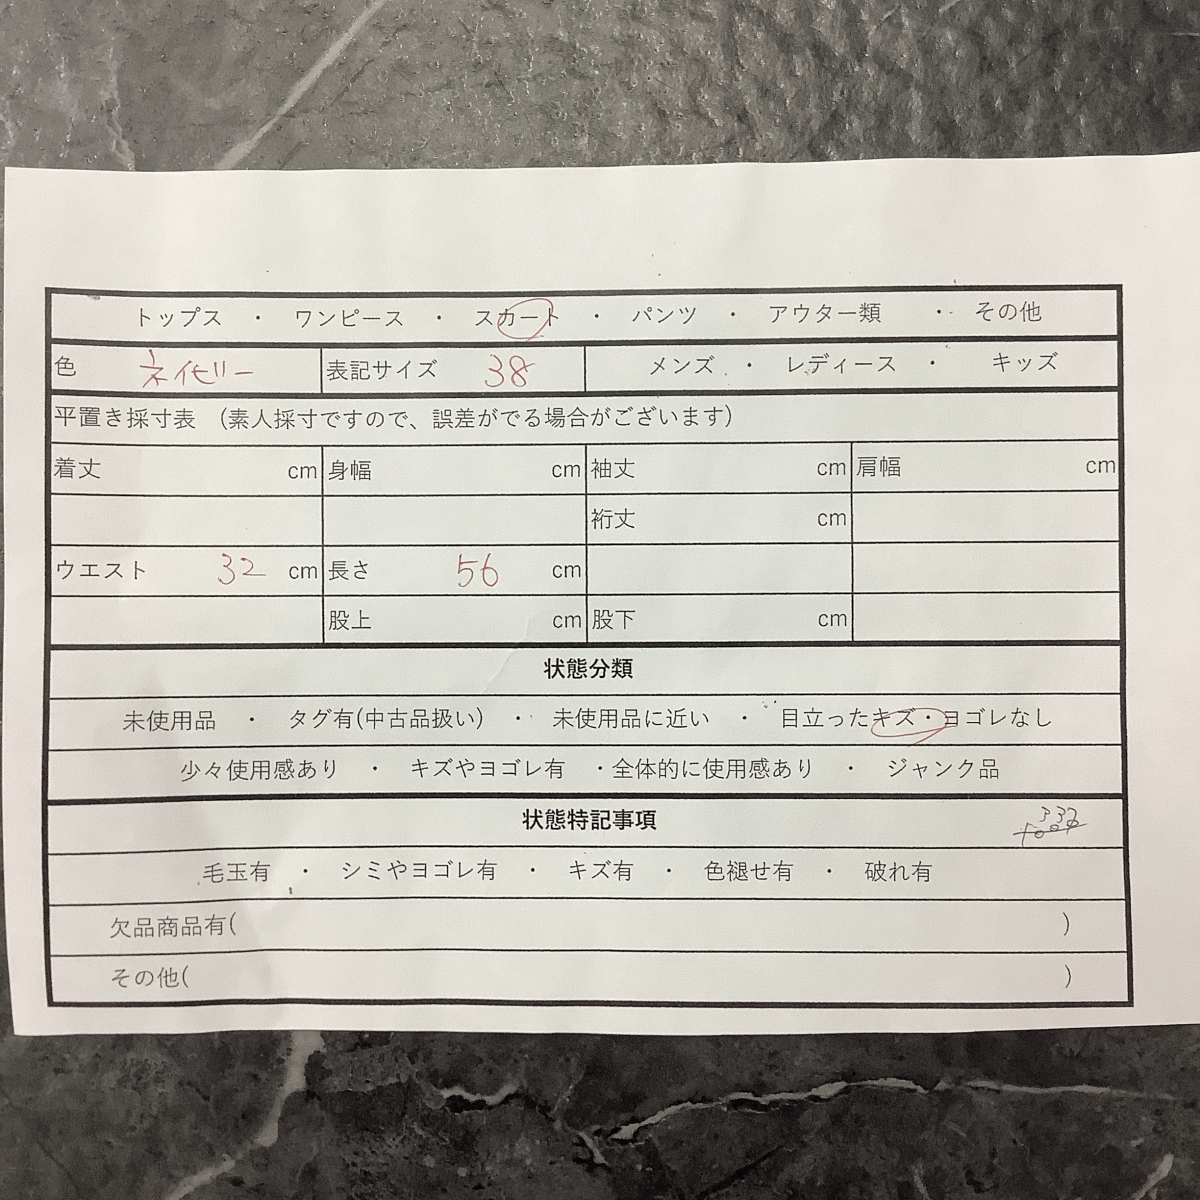 トップス ・ ワンピース ・ スカート ・ パンツ ・ アウター類 ・ その他
色 ネイビー 表記サイズ 38 メンズ ・ レディース ・ キッズ
平置き採寸表 （素人採寸ですので、誤差がでる場合がございます）
着丈 cm 身幅 cm 袖丈 cm 肩幅 cm
裄丈 cm
ウエスト 32 cm 長さ 56 cm
股上 cm 股下 cm
状態分類
未使用品 ・ タグ有(中古品扱い) ・ 未使用品に近い ・ 目立ったキズ・ヨゴレなし
少々使用感あり ・ キズやヨゴレ有 ・全体的に使用感あり ・ ジャンク品
状態特記事項
毛玉有 ・ シミやヨゴレ有 ・ キズ有 ・ 色褪せ有 ・ 破れ有
欠品商品有( )
その他( )